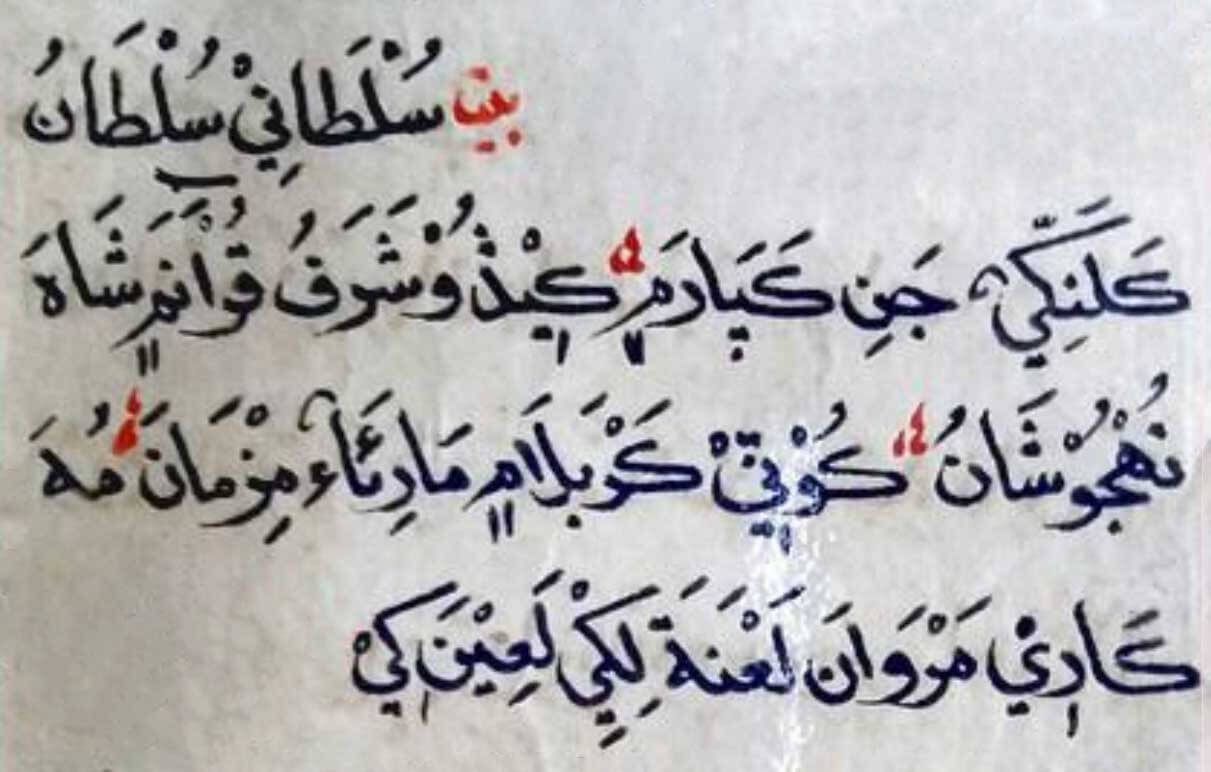 بيت سُلْطَانِيْ سُلْطَانُ
كَلَنِكِّيْ جَنِ كَپَارَمِ كِيْڎُوْ شَرَفُ قُوْانِمَ شَاهَ
نُهْجُوْ شَانُ كُوْتِيْ كَرْبَلَامِ مَارِئَاء مِزْمَانَ مُهَ
كَارِيْ مَرْوَانَ لَعْنَةَ لِكِيْ لَعِيْنَ كِيْ